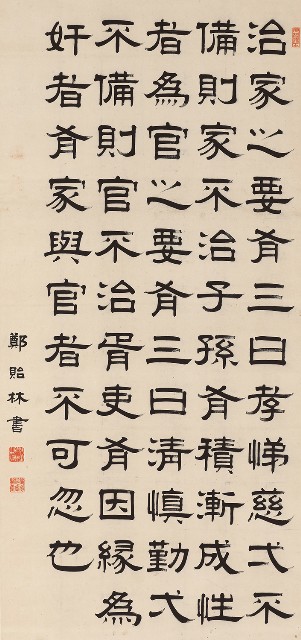 治家之要有三曰孝悌慈弌不
備則家不治子孫有積漸成性
者為官之要有三曰清慎勤弌
不備則官不治胥吏有因緣為
奸者有家與官者不可忽也
鄭貽林書